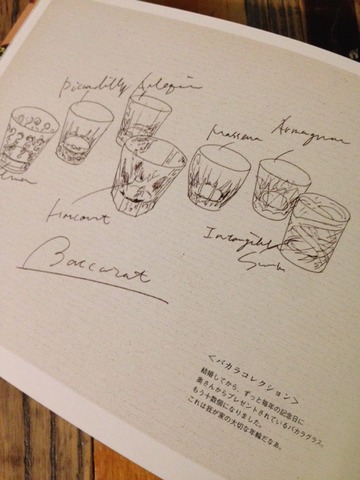 Piccadilly Arlequin
Massena
Armagnac
Harcourt
Intangible
Baccarat
＜バカラコレクション＞
結婚してから、ずっと毎年の記念日に
奥さんからプレゼントされているバカラグラス。
もう十数個になりました。
これは我が家の大切な年輪だなあ。